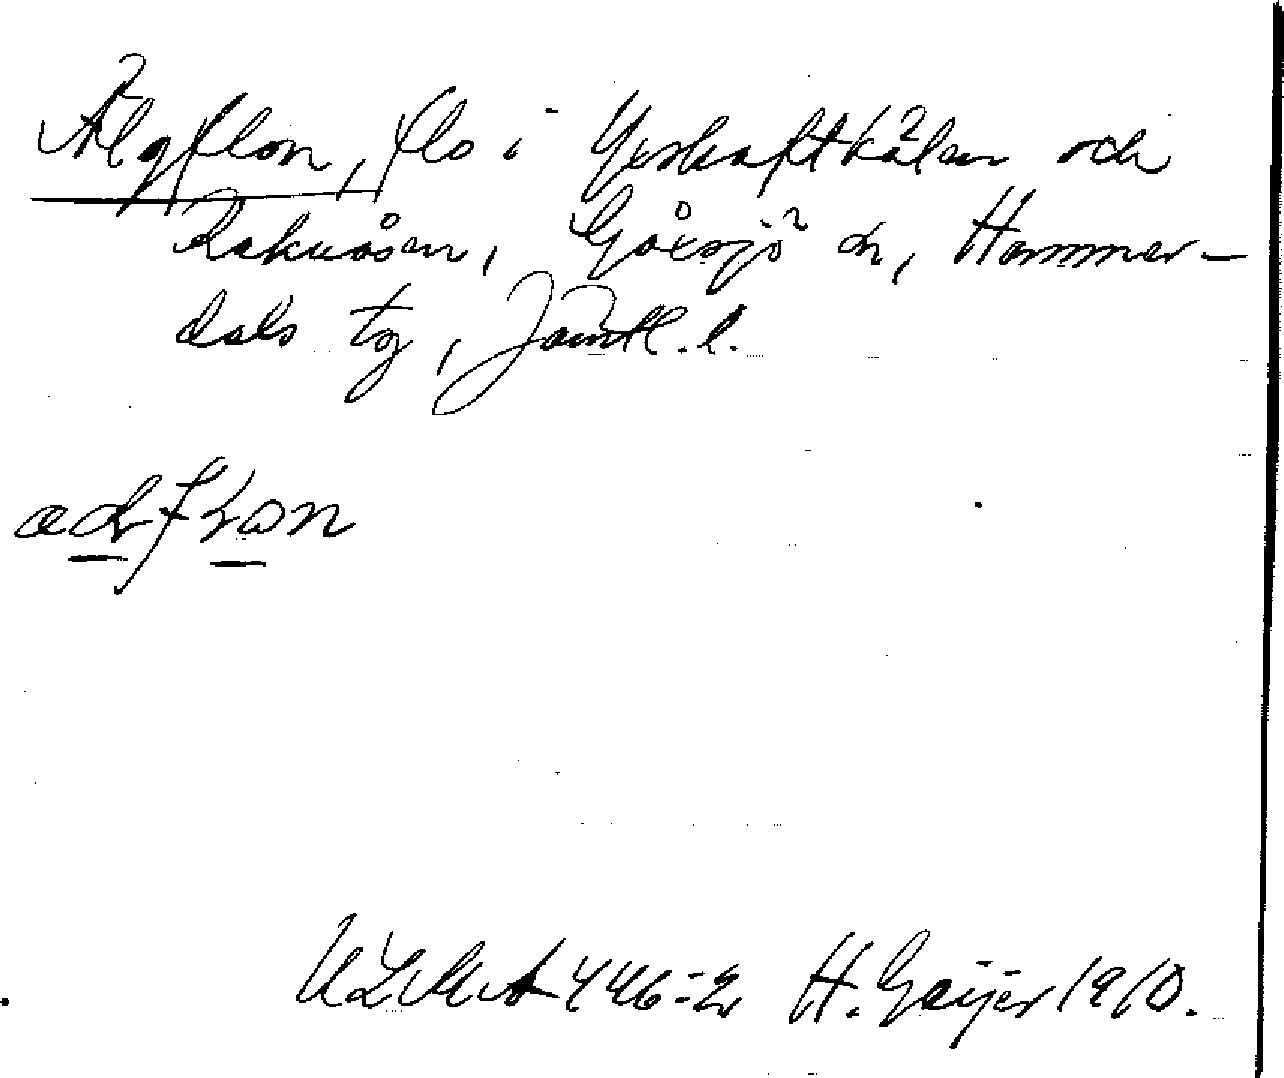 Älgflon, flo i Yxskaftkälen och
Raknåsen, Gåxsjö sn, Hammer-
dals tg, Jämtl. l.
ULMA 446:2 H. Geijer 1910.